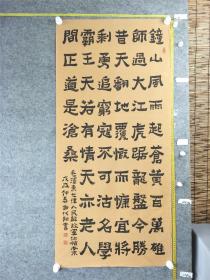 鐘山風雨起蒼黃百萬雄
師過大江虎踞龍盤今勝
昔天翻地覆慨而慷宜將
剩勇追窮寇不可沽名學
霸王天若有情天亦老人
間正道是滄桑
毛澤東七律人民解放軍佔領南京
戊戌仲春